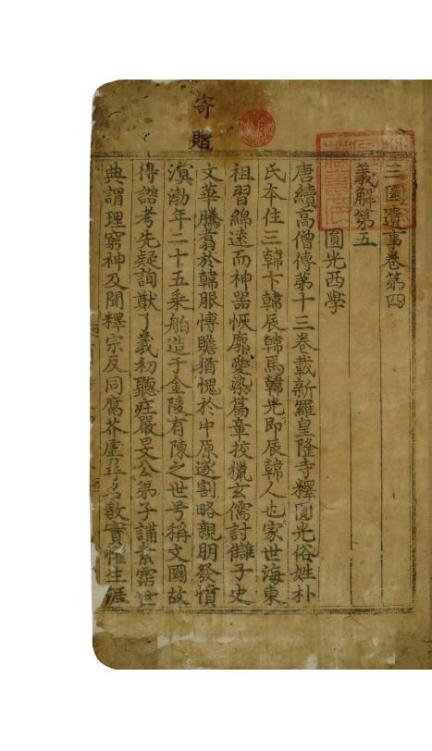 三國遺事卷第四
義解第五
圓光西學
唐續高僧傳第十三卷載新羅皇隆寺釋圓光俗姓朴
氏本住三韓卞韓辰韓馬韓光即辰韓人也家世海東
祖習綿遠而神器恢廓愛染篇章挍獵玄儒討讎子史
文華騰翥於韓服愽贍猶愧於中原遂割略親朋發憤
溟渤年二十五乗舶造于金陵有陳之世号稱文國故
得諮考先疑詢猷了義初聽庄嚴旻公弟子講素霑世
典謂理窮神及聞釋宗反同腐芥虛尋名教實懼生涯
寄贈